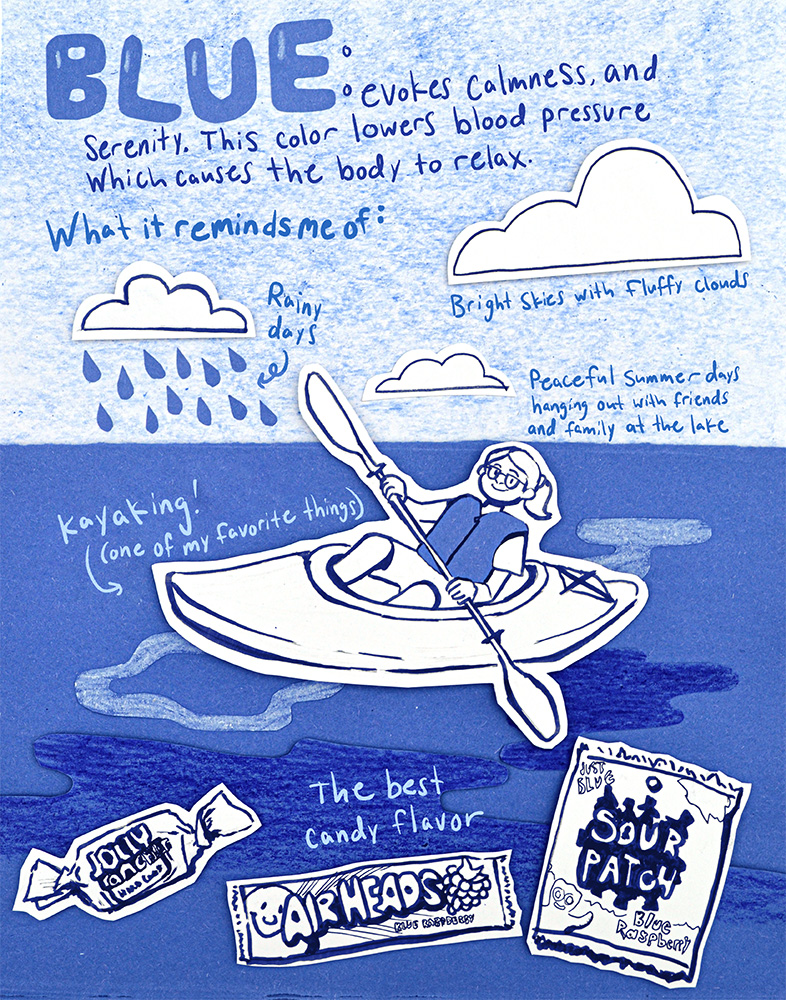 BLUE: evokes calmness, and
Serenity. This color lowers blood pressure
which causes the body to relax.
What it reminds me of:
Bright skies with fluffy clouds
Rainy
days
Peaceful summer days
hanging out with friends
and family at the lake
Kayaking!
(one of my favorite things)
The best
candy flavor
JOLLY
RANCHER
HARD CANDY
AIRHEADS
BLUE RASPBERRY
JUST
BLUE
SOUR
PATCH
Blue
Raspberry